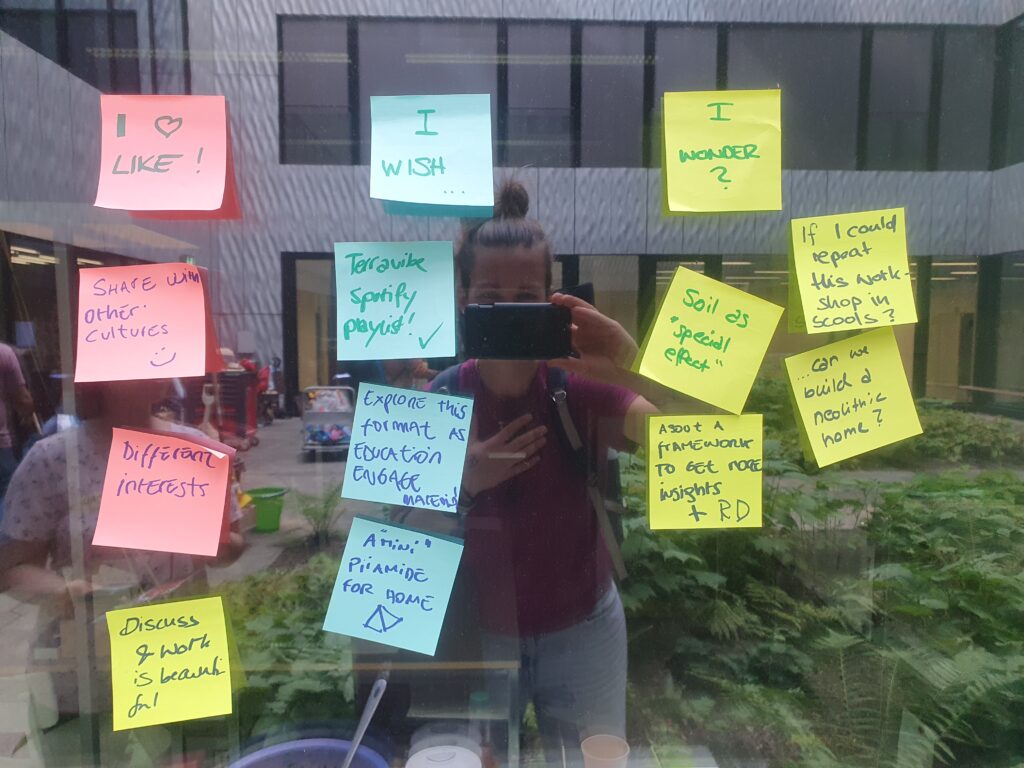 I ♡
LIKE!
SHARE WITH
other
cultures
Different
interests
Discuss
& work
is beauti
ful
I
WISH
...
Terravibe
Spotify
playlist! ✓
EXPLORE THIS
FORMAT AS
EDUCATION
ENGAGE
MATERIAL
A "mini"
PIIAMIDE
FOR HOME
I
WONDER
?
Soil as
"special
effect"
ABOUT A
FRAMEWORK
TO GET MORE
insights
+ RD
If I could
repeat
this work-
shop in
scools?
...can we
build a
neolithic
home?